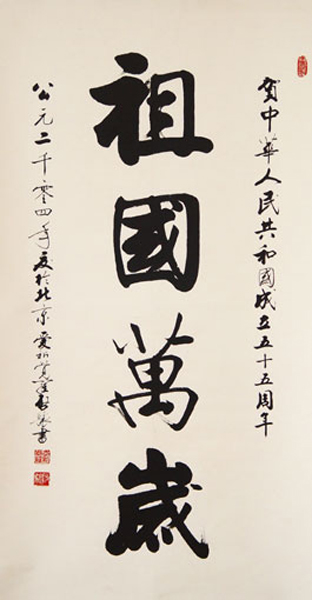 賀中華人民共和國成立五十五周年
祖國萬歲
公元二千零四年夏於北京愛新覺羅